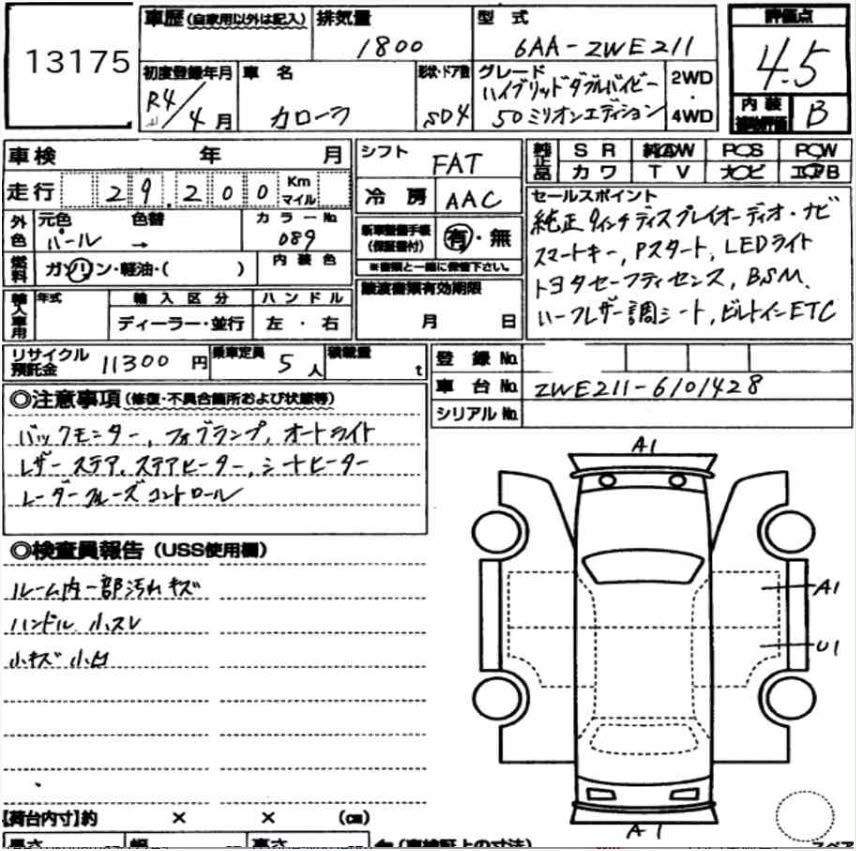 13175
車歴(自家用以外は記入)
排気量
1800
型式
6AA-ZWE211
評価点
4.5
初度登録年月
R4/4月
車名
カローラ
形状・ドア数
SD4
グレード
ハイブリッドダブルバイビー
50ミリオンエディション
2WD
・
4WD
内装
補助評価
B
車検 年 月
シフト
FAT
純正品
SR
純正AW
PS
PW
カワ
TV
ナビ
エアB
走行 29,200 Km
マイル
冷房
AAC
外色
元色
パール
色替
→
カラーNo
089
新車整備手帳
(保証書付)
有・無
※書類と一緒に保管下さい。
セールスポイント
純正9インチディスプレイオーディオ・ナビ
スマートキー, Pスタート, LEDライト
トヨタセーフティセンス, BSM,
ハーフレザー調シート, ビルトインETC
燃料
ガソリン・軽油・( )
内装色
輸入車用
年式
輸入区分
ハンドル
ディーラー・並行
左・右
譲渡書類有効期限
月 日
リサイクル
預託金
11300円
乗車定員
5人
積載量
t
登録No.
車台No.
ZWE211-6101428
シリアルNo.
◎注意事項(修復・不具合箇所および状態等)
バックモニター, フォグランプ, オートライト
レザーステア, ステアヒーター, シートヒーター
レーダークルーズコントロール
◎検査員報告(USS使用欄)
ルーム内一部汚れキズ
ハンドル小スレ
小キズ小凹
A1
A1
U1
A1
【荷台内寸】約 × × (cm)
長さ
幅
高さ
(車検証上の寸法)
スペア